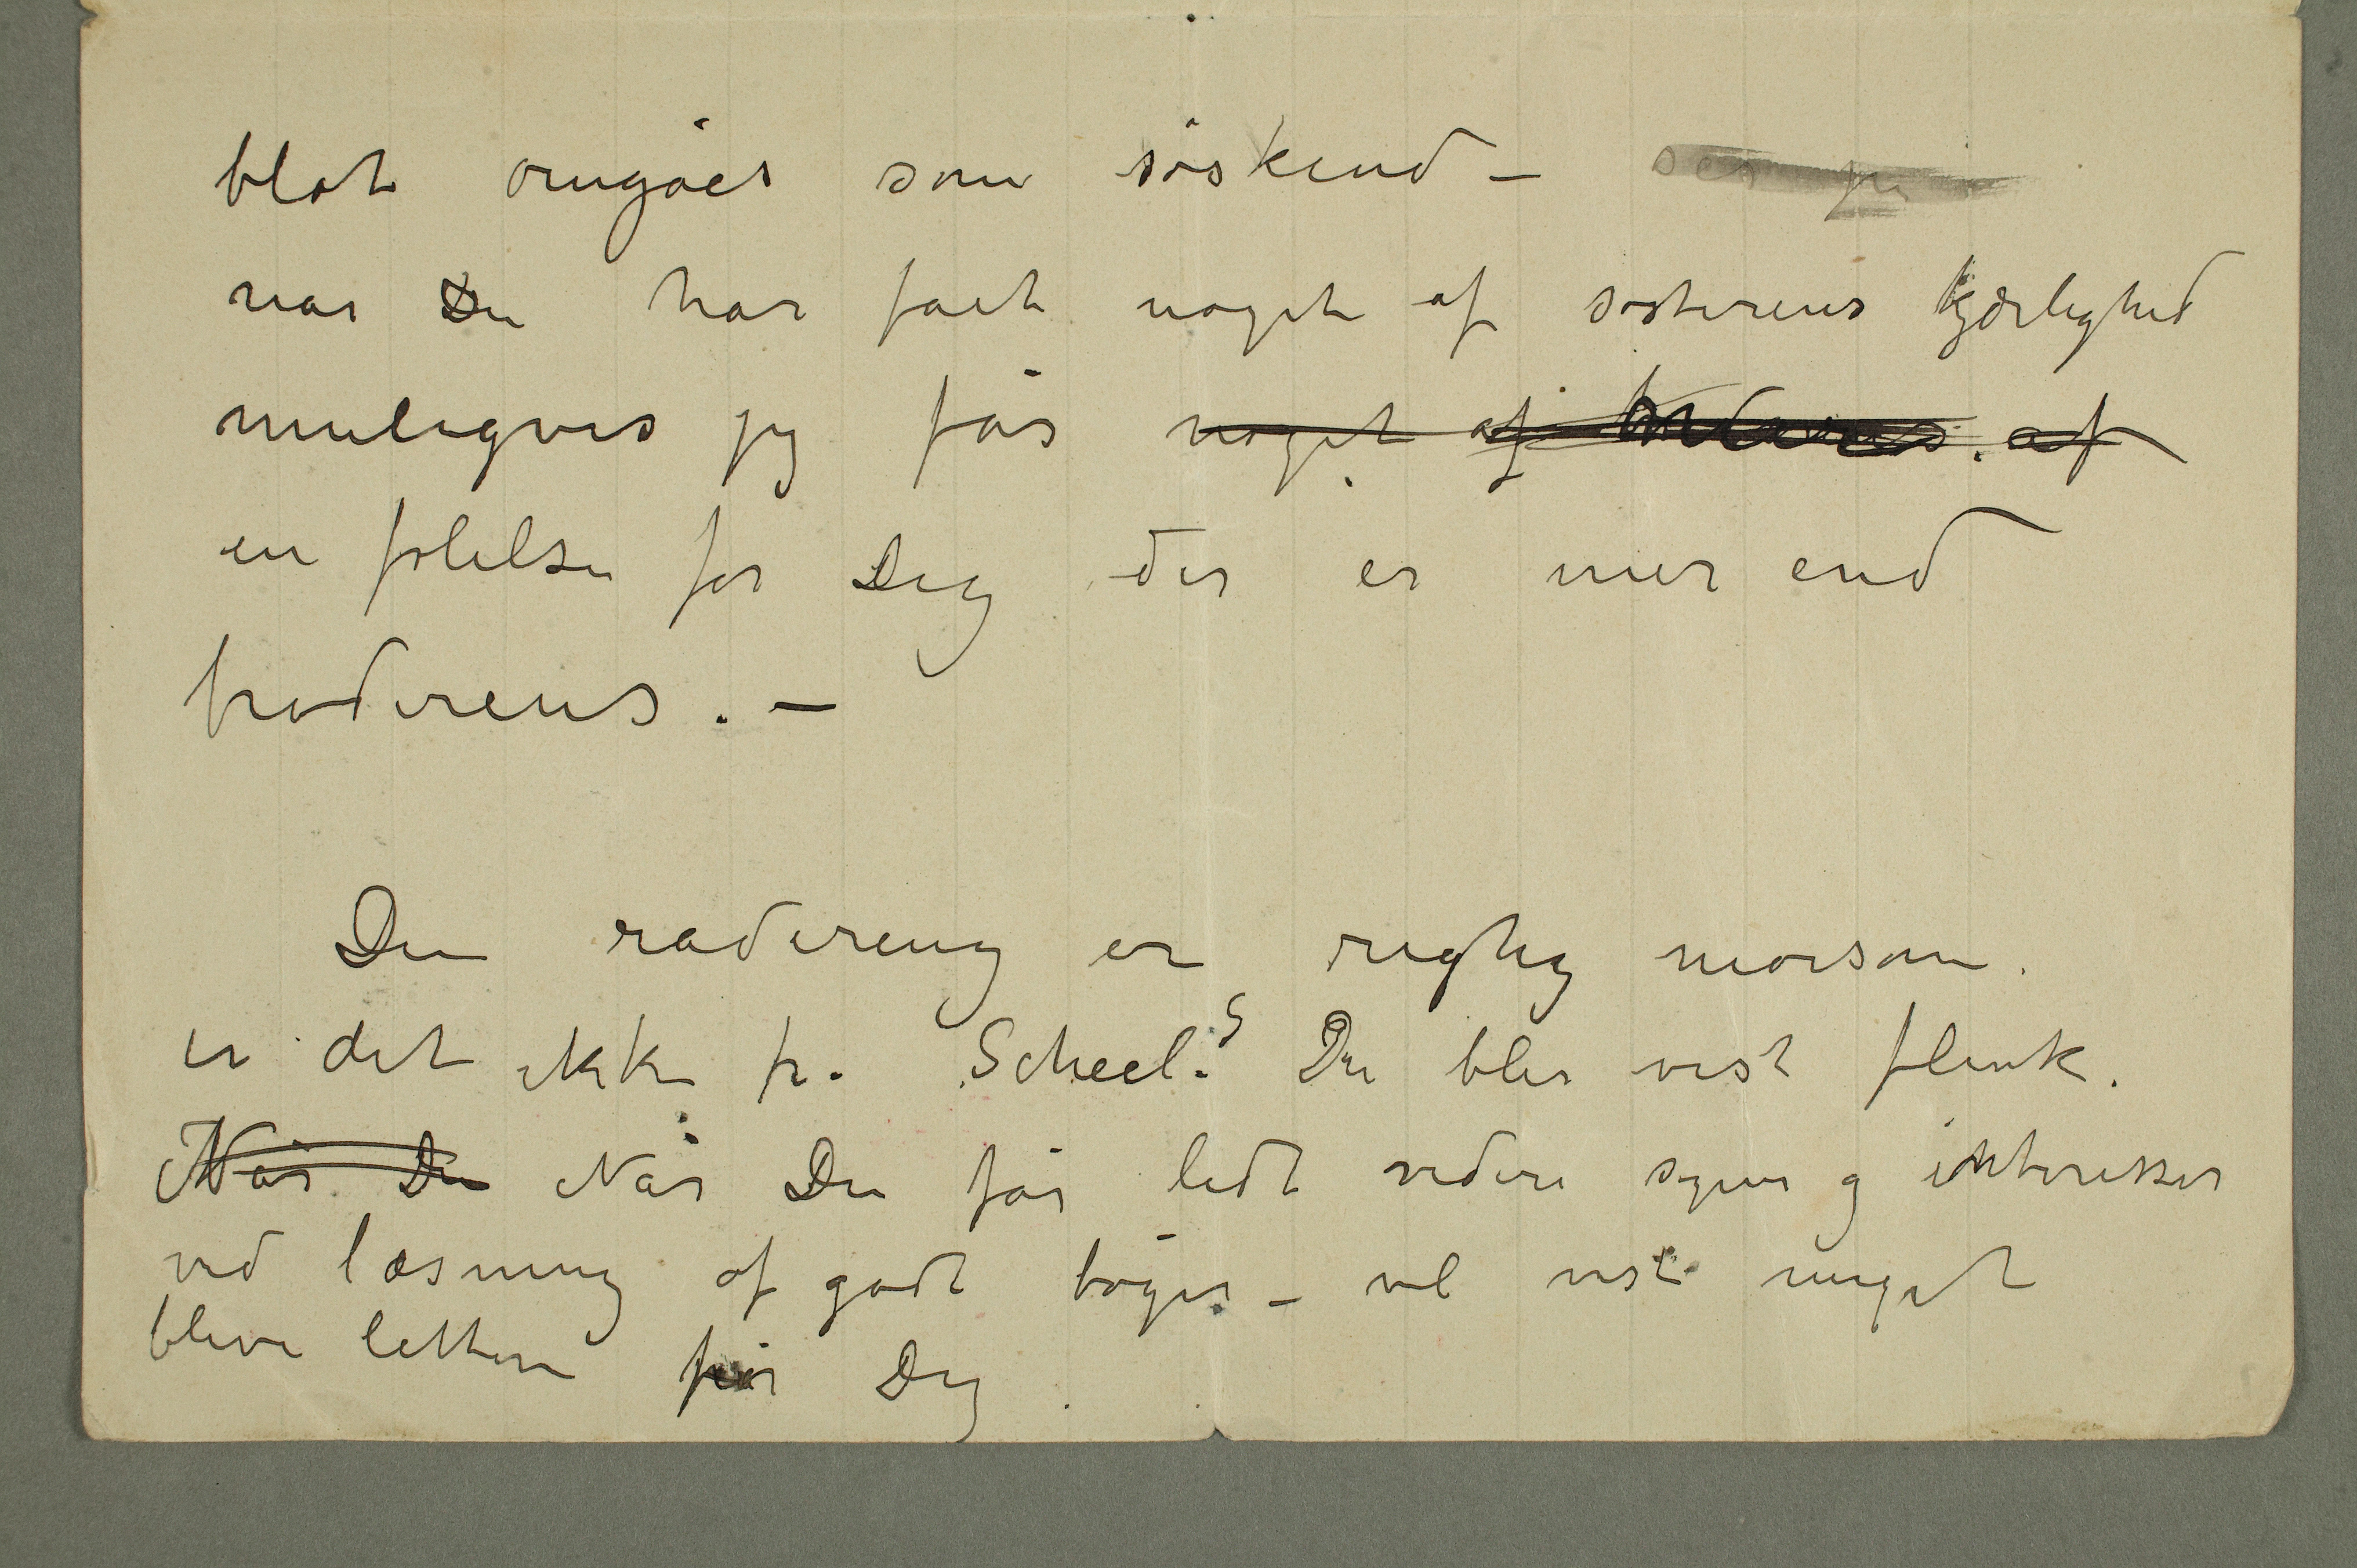 blot omgåes som søskend –
nar Du har fået noget af søsterens kjærlighed
muligvis jeg får noget af af
en følelse for Dig der er mer end
broderens. –
Din radering er rigtig morsom.
er det ikke fr. Scheel.? Du blir vist flink.
Når Du Når Du får ledt videre syner og interesser
ved læsning af godt bøger – vil vist meget
blive lettere for Dig.